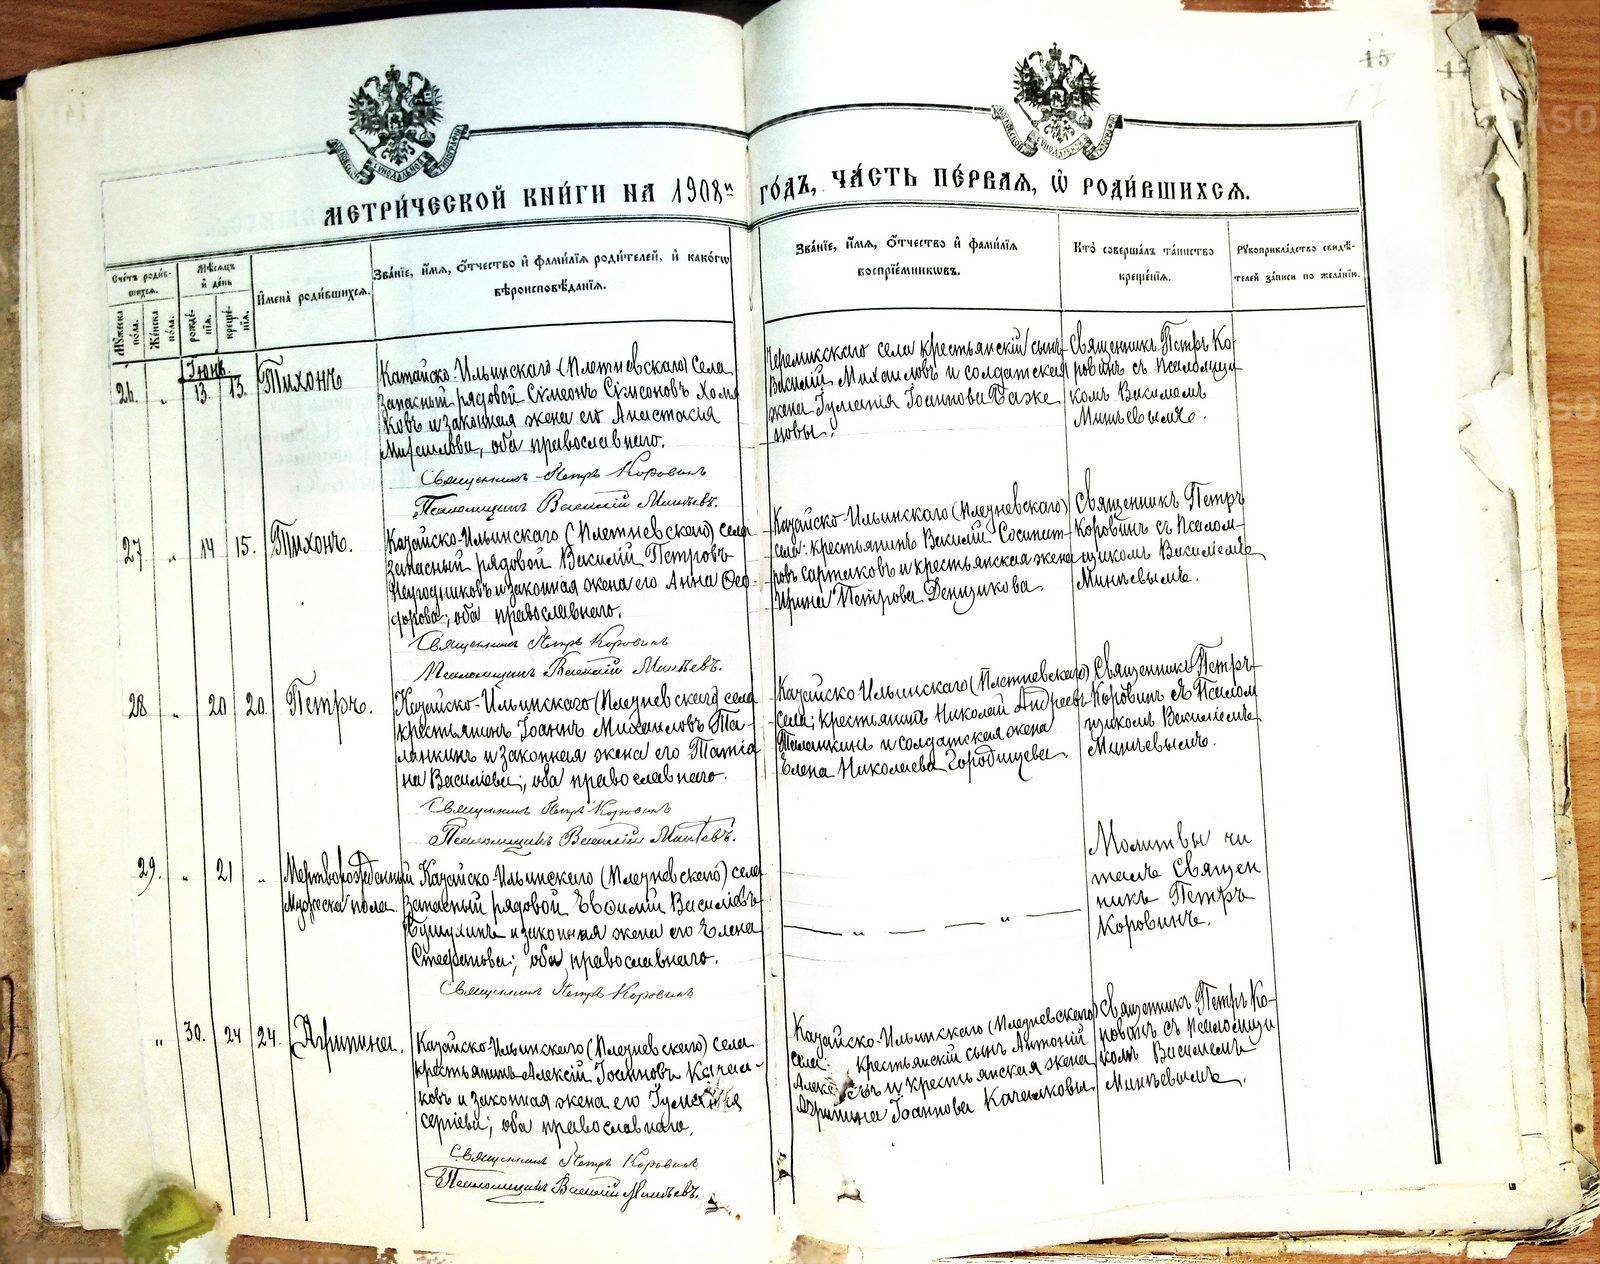 МЕТРИ́ЧЕСКОЙ КНИ́ГИ НА 1908й ГО́ДЪ, ЧА́СТЬ ПЕ́РВАЯ, Ѡ҆ РОДИ́ВШИХСЯ.
15
Сче́тъ роди́в-
шихся.
Мꙋ́жеска по́ла.
Же́нска по́ла.
Мѣ́сяцъ
и҆ де́нь
рожде́-
нїя.
креще́-
нїя.
И҆мена̀ роди́вшихся.
Зва́нїе, и҆́мя, о҆́тчество и҆ фами́лїя роди́телей, и҆ како́гѡ
вѣроисповѣ́данїя.
Зва́нїе, и҆́мя, о҆́тчество и҆ фами́лїя
воспрїе́мникѡвъ.
Кто̀ соверша́лъ та́инство
креще́нїя.
Рꙋкоприкла́дство свидѣ́-
телей за́писи по жела́нїю.
Іюнь.
26. „ 13. 13. Тихонъ
Катайско-Ильинскаго (Плетневскаго) села
запасный рядовой Симеонъ Симеоновъ Хомя
ковъ и законная жена его Анастасія
Михаилова, оба православнаго.
Священникъ Петръ Коровинъ
Псаломщикъ Василій Минѣевъ.
села крестьянскій сынъ
Василій Михаиловъ и солдатская
жена Іоаннова
новы.
Священникъ Петръ Ко-
ровинъ съ Псаломщи
комъ Василіемъ
Минѣевымъ.
27 „ 14 15. Тихонъ.
Катайско-Ильинскаго (Плетневскаго) села
запасный рядовой Василій Петровъ
и законная жена его Анна Ѳео-
дорова, оба православнаго.
Священникъ Петръ Коровинъ
Псаломщикъ Василій Минѣевъ.
Катайско-Ильинскаго (Плетневскаго)
села: крестьянинъ Василій Сосипат-
ровъ Сартаковъ и крестьянская жена
Ирина Петрова Денщикова.
Священникъ Петръ
Коровинъ съ Псалом-
щикомъ Василіемъ
Минѣевымъ.
28 „ 20 20. Петръ.
Катайско-Ильинскаго (Плетневскаго) села
крестьянинъ Іоаннъ Михаиловъ Та-
ланкинъ и законная жена его Татіа
на Василіева; оба православнаго.
Священникъ Петръ Коровинъ
Псаломщикъ Василій Минѣевъ.
Катайско-Ильинскаго (Плетневскаго)
села; крестьянинъ Николай Андреевъ
Таланкинъ и солдатская жена
Елена Николаева Городищева.
Священникъ Петръ
Коровинъ съ Псалом
щикомъ Василіемъ
Минѣевымъ.
29. „ 21 „ Мертворожденный
Мужеска пола.
Катайско-Ильинскаго (Плетневскаго) села
запасный рядовой Евѳимій Василіевъ
и законная жена его Елена
Стефанова; оба православнаго.
Священникъ Петръ Коровинъ
— „ — — „ —
Молитвы чи
талъ Священ
никъ Петръ
Коровинъ.
„ 30. 24 24. Агрипина.
Катайско-Ильинскаго (Плетневскаго) села
крестьянинъ Алексій Іоанновъ Качал-
ковъ и законная жена его
Сергіева; оба православнаго.
Священникъ Петръ Коровинъ
Псаломщикъ Василій Минѣевъ.
Катайско-Ильинскаго (Плетневскаго)
села: крестьянскій сынъ Антоній
и крестьянская жена
Агрипина Іоаннова Качалковы.
Священникъ Петръ Ко-
ровинъ съ Псаломщи
комъ Василіемъ
Минѣевымъ.